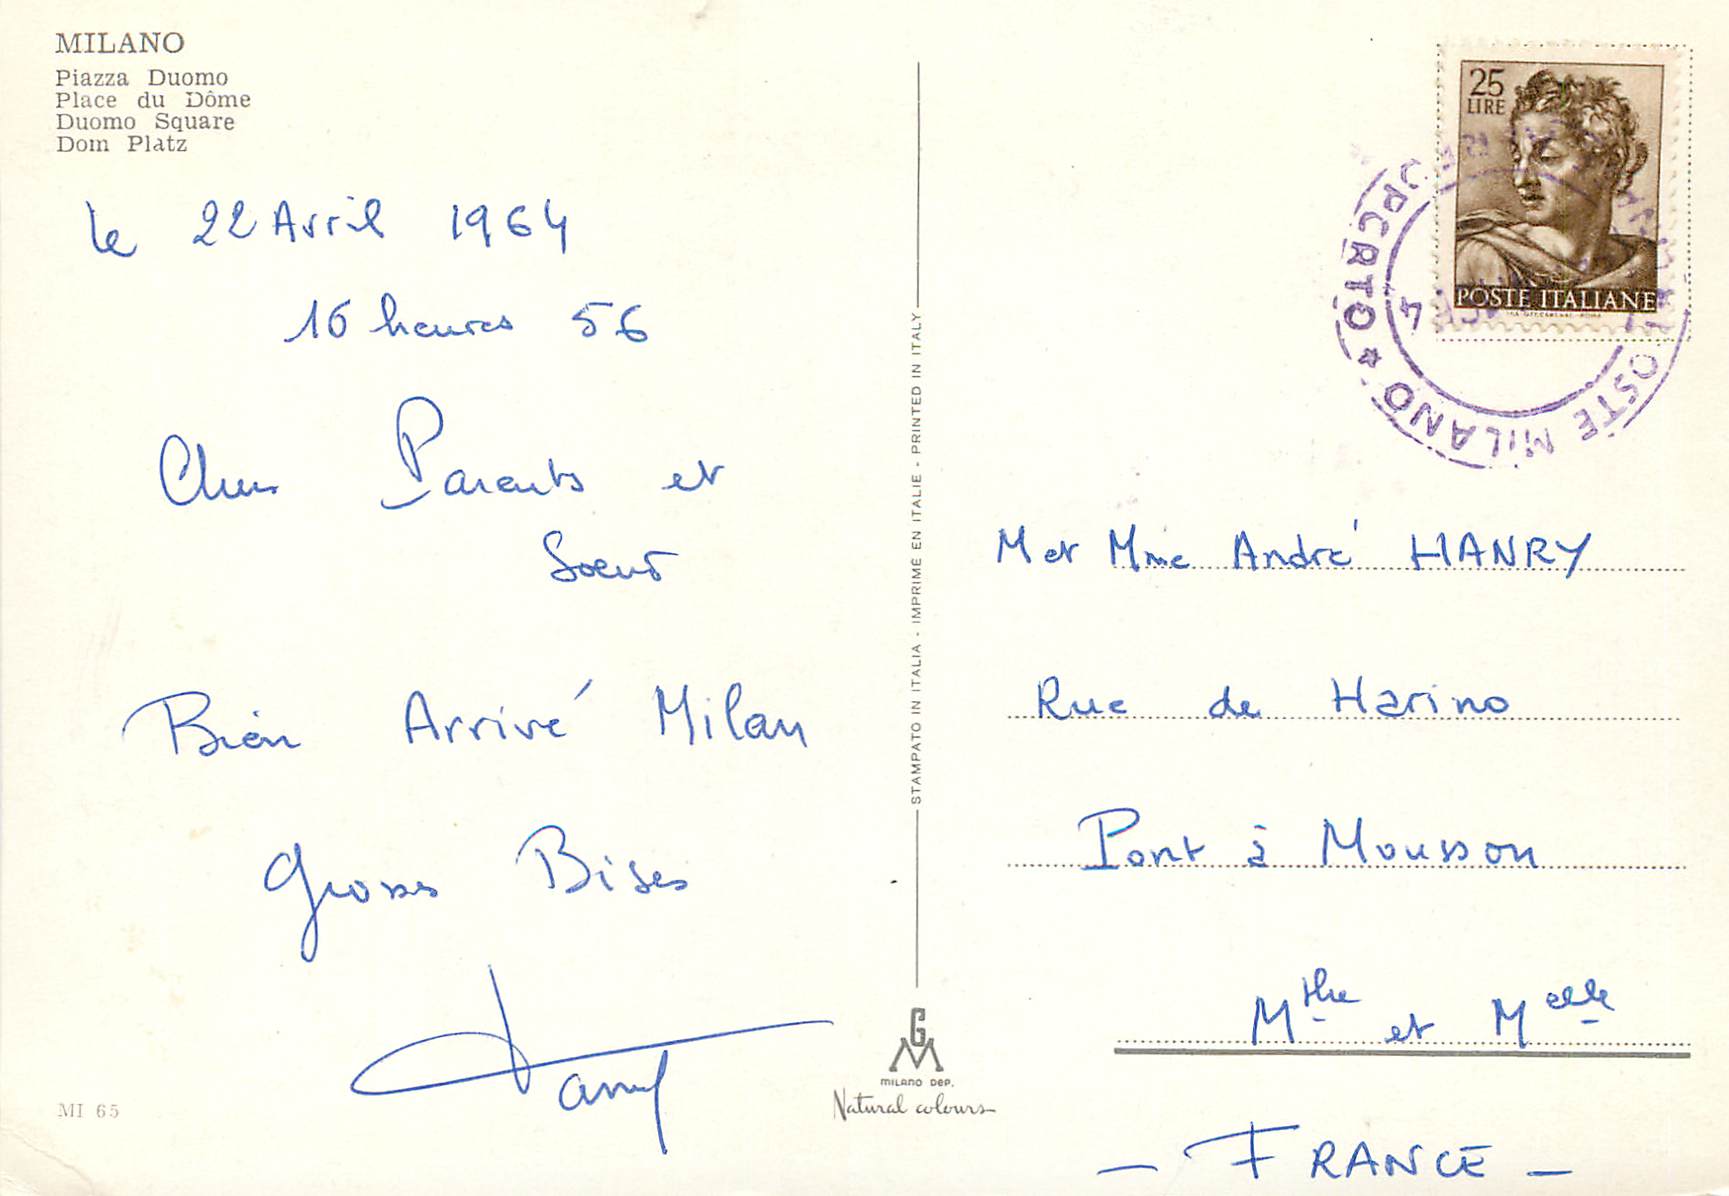 MILANO
Piazza Duomo
Place du Dôme
Duomo Square
Dom Platz
le 22 Avril 1964
16 heures 56
Chers Parents et
Soeur
Bien Arrivé Milan
Grosses Bises
MI 65
STAMPATO IN ITALIA - IMPRIMÉ EN ITALIE - PRINTED IN ITALY
GM
MILANO DEP.
Natural colours
25
LIRE
POSTE ITALIANE
POSTE MILANO
4
M et Mme André HANRY
Rue de Harino
Pont à Mousson
Mthe et Melle
- FRANCE -